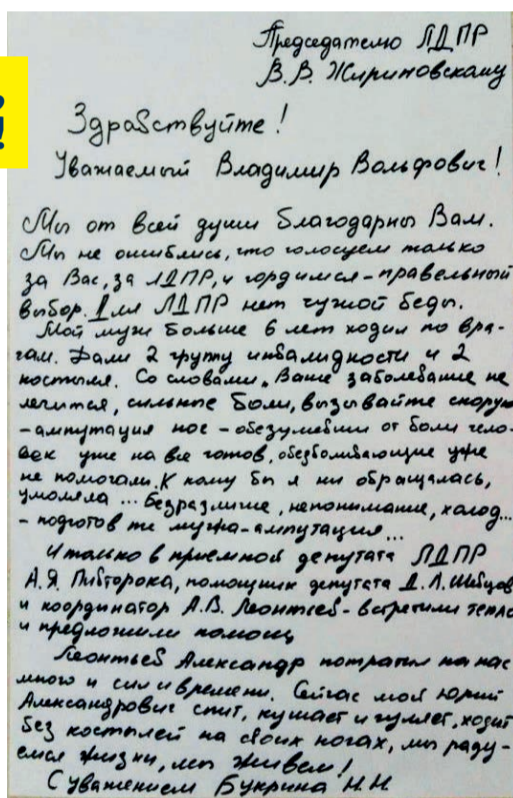 !
Председателю ЛДПР
В.В. Жириновскому
Здравствуйте!
Уважаемый Владимир Вольфович!
Мы от всей души благодарны Вам.
Мы не ошиблись, что голосуем только
за Вас, за ЛДПР, и гордимся - правельный
выбор. Для ЛДПР нет чужой беды.
Мой муж больше 6 лет ходил по вра-
чам. Дали 2 группу инвалидности и 2
костыля. Со словами „Ваше заболевание не
лечится, сильные боли, вызывайте скорую
- ампутация ног - обезумевший от боли чело-
век уже на все готов, обезболивающие уже
не помогали. К кому бы я ни обращалась,
умоляла ... Безразличие, непонимание, холод...
- подготовьте мужа - ампутация...
И только в приемной депутата ЛДПР
А.Я. Пивторока, помощник депутата Д.Л. Шевцов
и координатор А.В. Леонтьев - встретили тепло
и предложили помощь
Леонтьев Александр потратил на нас
много и сил и времени. Сейчас мой Юрий
Александрович спит, кушает и гуляет, ходит
без костылей на своих ногах, мы раду-
емся жизни, мы живем!
С уважением Букрина Н.Н.